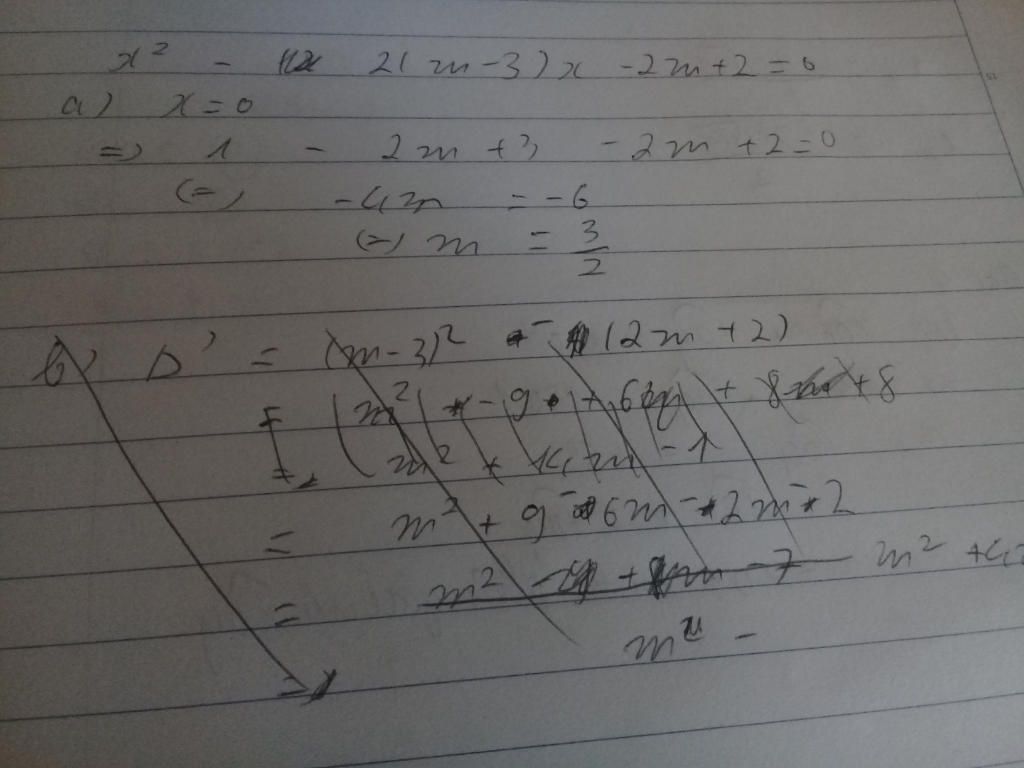 x² - 2(m-3)x -2m+2=0
a) x=0
=> 1 - 2m+3 -2m+2=0
(=) -4m = -6
(=) m = 3/2
b) Δ' = (m-3)² - (2m+2)
= m² - 9 + 6m + 8
= m² + 14m - 1
= m² + 9 - 6m - 2m - 2
= m² - 7 m² +4
m² -